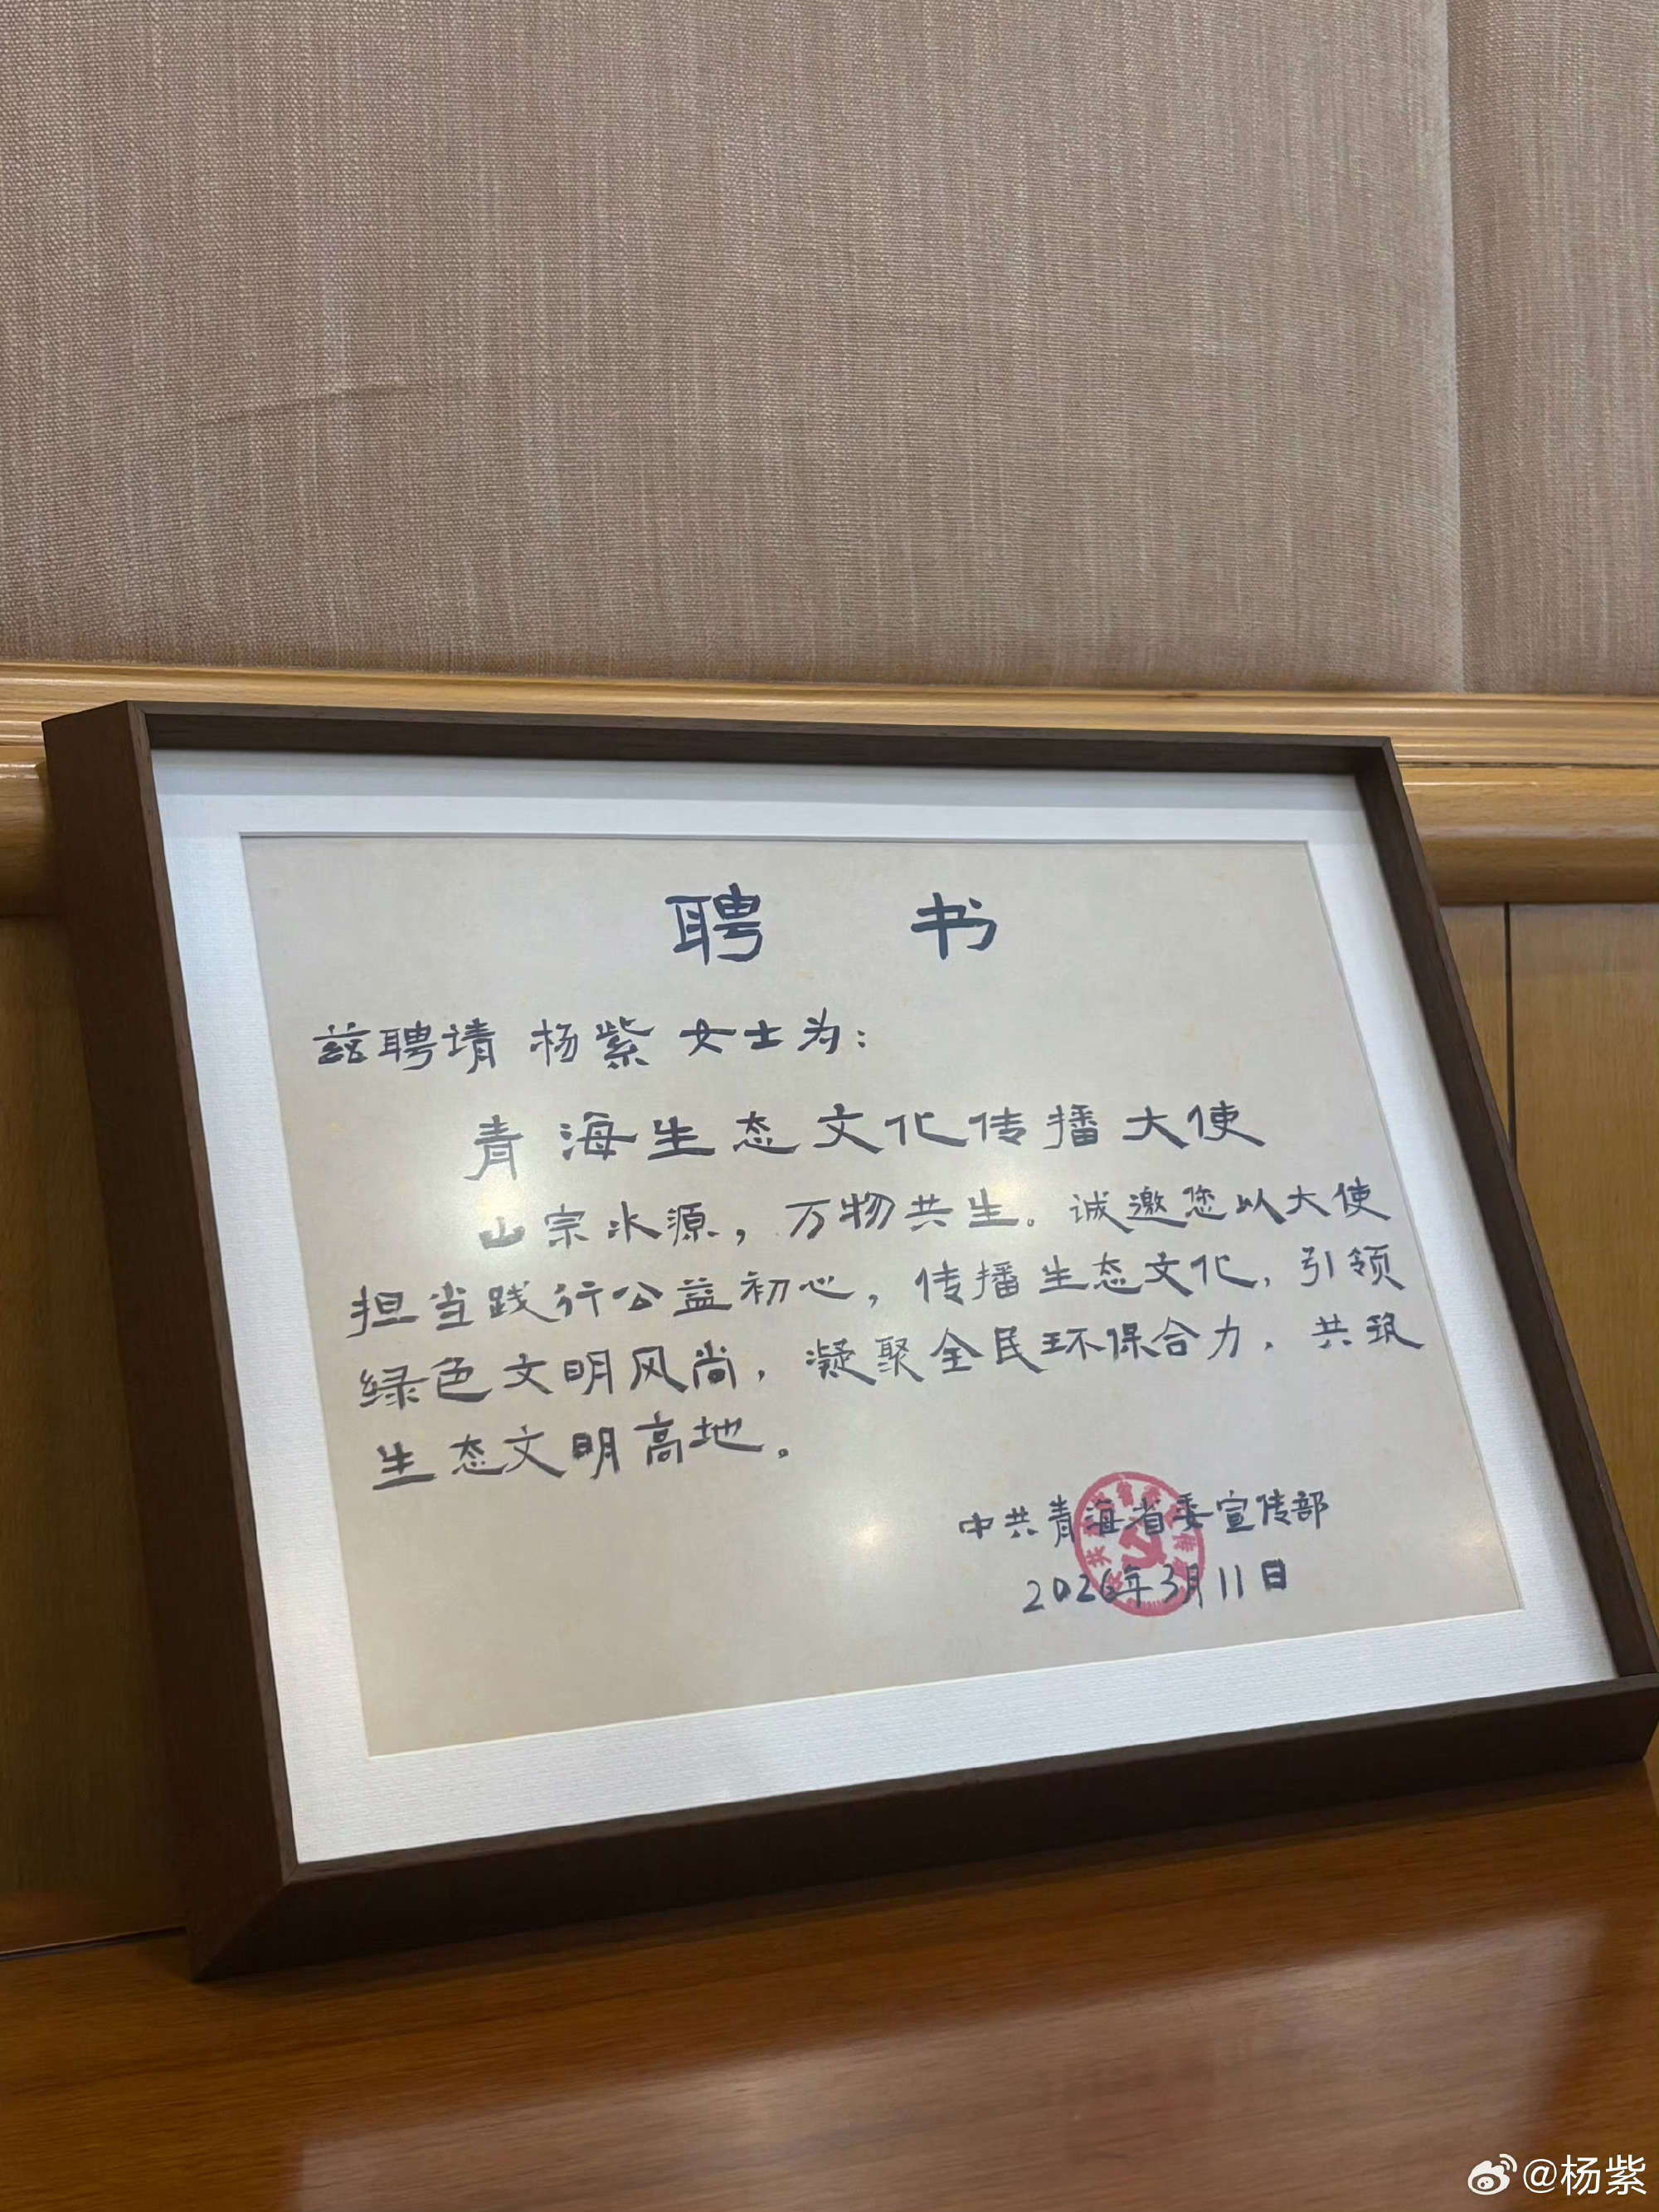 聘 书
兹聘请 杨紫 女士为：
青海生态文化传播大使
山宗水源，万物共生。诚邀您以大使
担当践行公益初心，传播生态文化，引领
绿色文明风尚，凝聚全民环保合力，共筑
生态文明高地。
中共青海省委宣传部
2026年3月11日
@杨紫